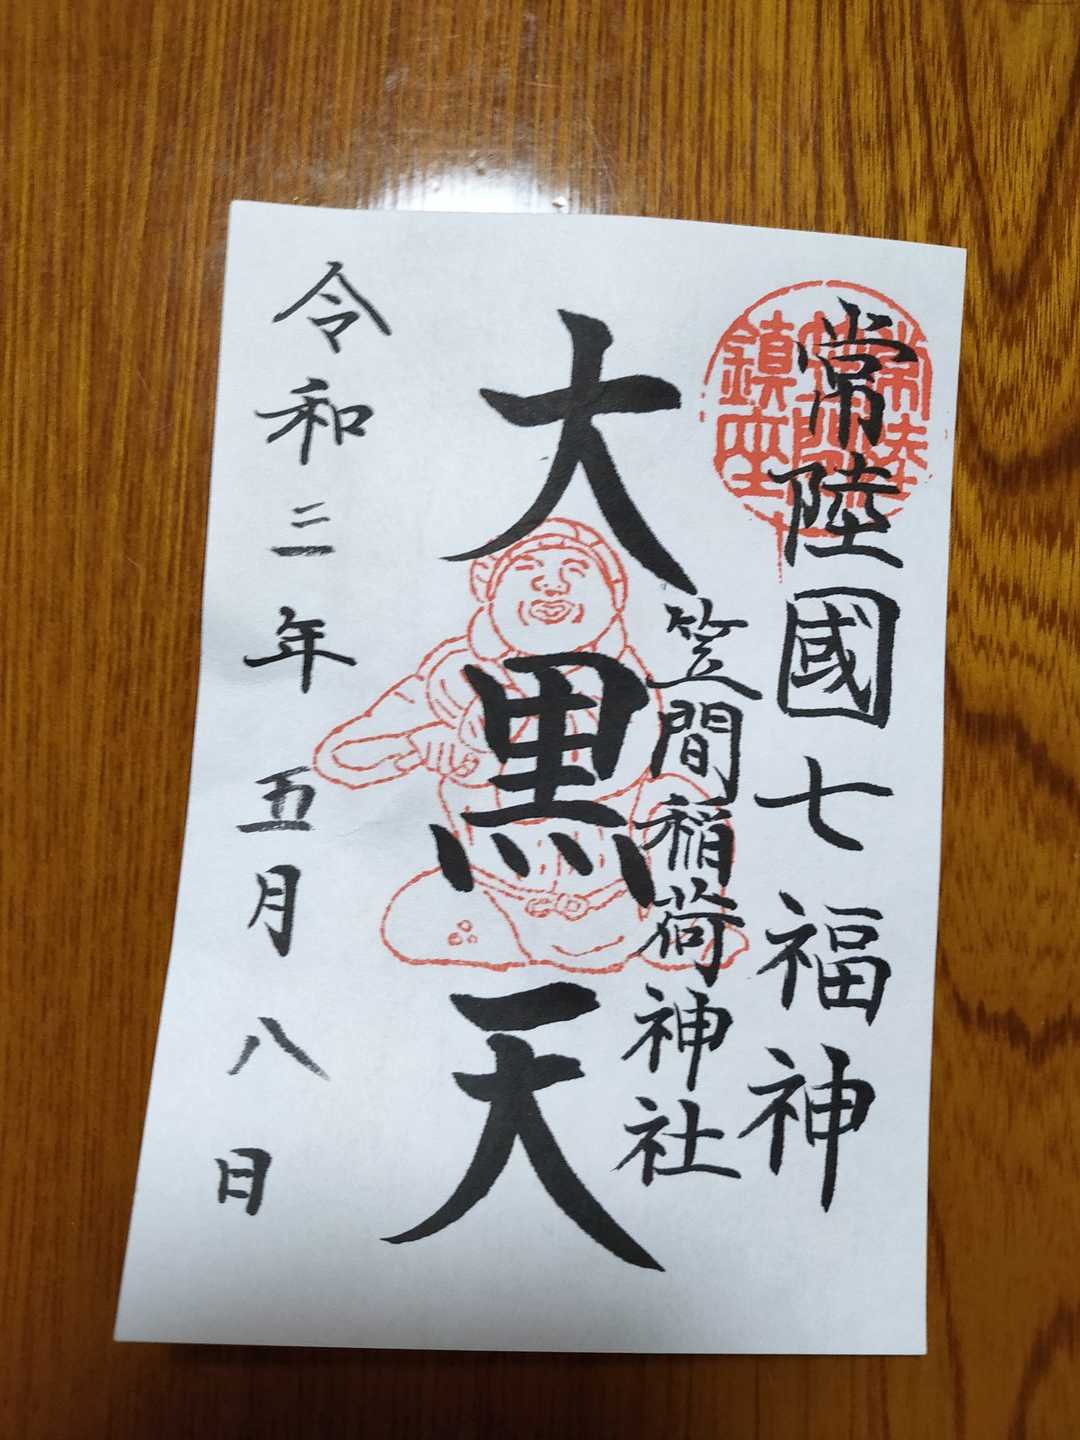 常陸國七福神
笠間稲荷神社
大黒天
令和三年五月八日
常陸
鎮座